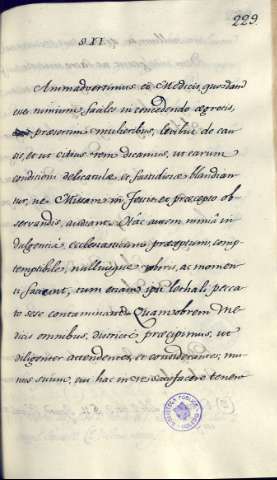 229
§. XI.
Animadvertimus ex Medicis, quosdam
esse nimium faciles in concedendo ægrotis,
præsertim mulieribus, levibus de cau-
sis, et ut citius rem dicamus, ut earum
condicioni delicatulæ, et fastidiosæ blandian-
tur, ne Missam in Festis ex præcepto ob-
servandis, audiant. Hac autem nimiâ in-
dulgentiâ ecclesiasticum præceptum, comp-
temptibile, nulliusque roboris, ac momen-
ti faciunt, tum etiam ipsi lethali pecca-
to sese contaminant. Quamobrem Me-
dicis omnibus, districtè præcipimus, ut
diligenter attendentes, et considerantes, mu-
nus suum, cui hac in re satisfacere tenen-
BIBLIOTECA PUBLICA
TOLEDO